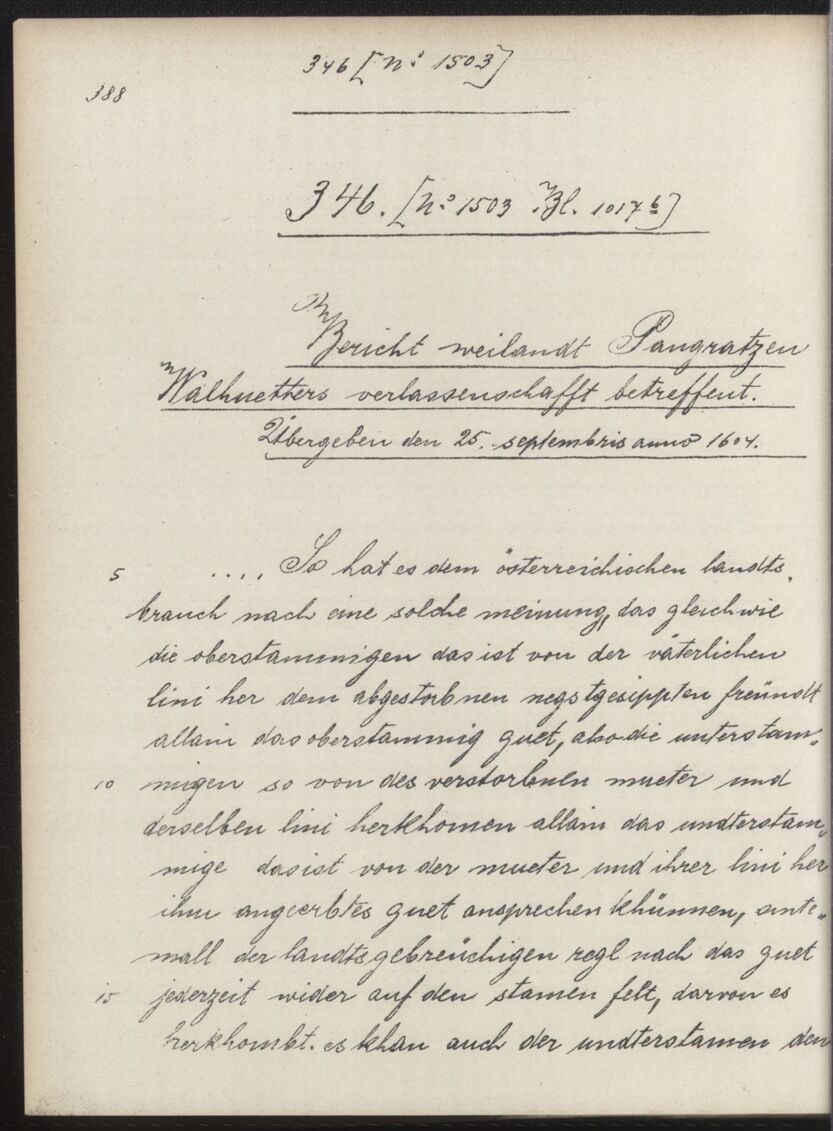 346 [Nº 1503]
388
346. [Nº 1503 Bl. 1017 b]
Bericht weilandt Pangratzen
Walhuetters verlassenschafft betreffent.
Übergeben den 25. septembris anno 1604.
5 .... So hat es dem österreichischen landts
brauch nach eine solche meinung, das gleichwie
die oberstammigen das ist von der väterlichen
lini her dem abgestorbnen negstgesippten freündt
allain das oberstammig guet, also die unterstam„
10 migen so von des verstorbnen mueter und
derselben lini herkhomen allain das undterstam„
mige das ist von der mueter und ihrer lini her
ihm angeerbtes guet ansprechen khünnen, sinte„
mall der landtsgebreüchigen regl nach das guet
15 jederzeit wider auf den stamen felt, darvon es
herkhombt. es khan auch der undterstamen den